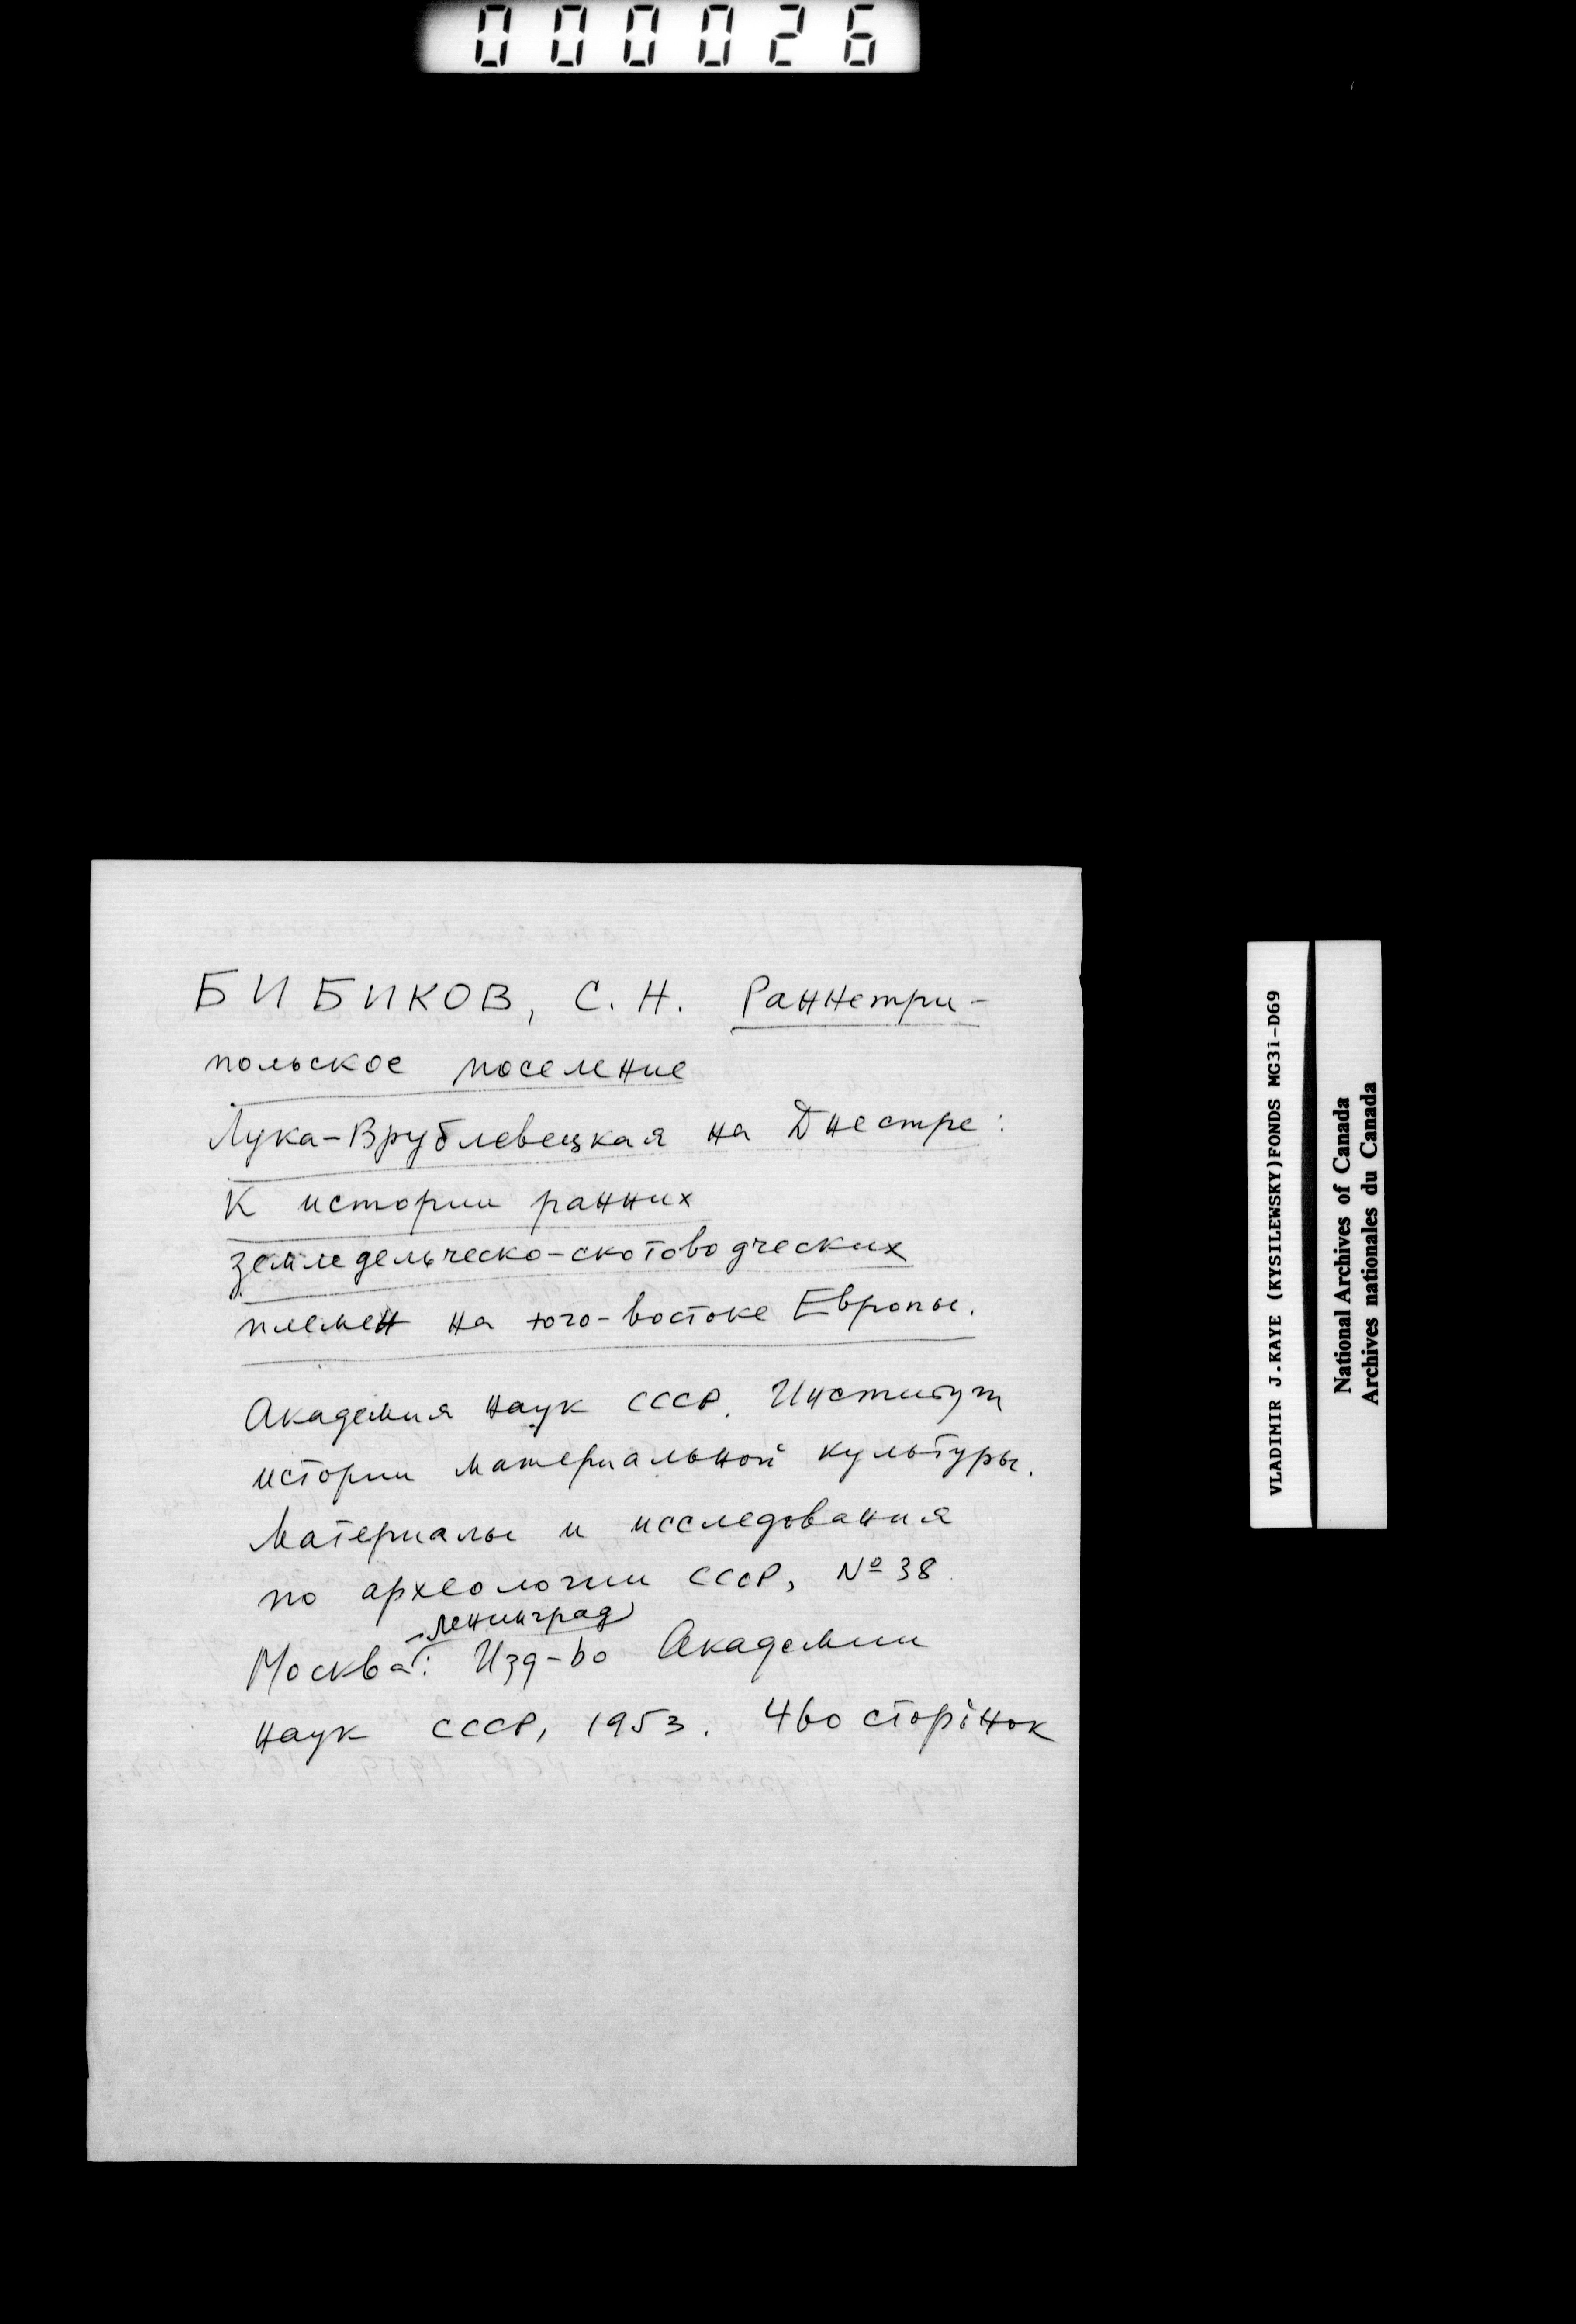 000026
БИБИКОВ, С. Н. Раннетри-
польское поселение
Лука-Врублевецкая на Днестре:
К истории ранних
земледельческо-скотоводческих
племен на юго-востоке Европы.
Академия наук СССР. Институт
истории материальной культуры.
Материалы и исследования
по археологии СССР, № 38.
-Ленинград
Москва: Изд-во Академии
наук СССР, 1953. 460 сторінок
VLADIMIR J.KAYE (KYSILEWSKY)FONDS MG31-D69
National Archives of Canada
Archives nationales du Canada